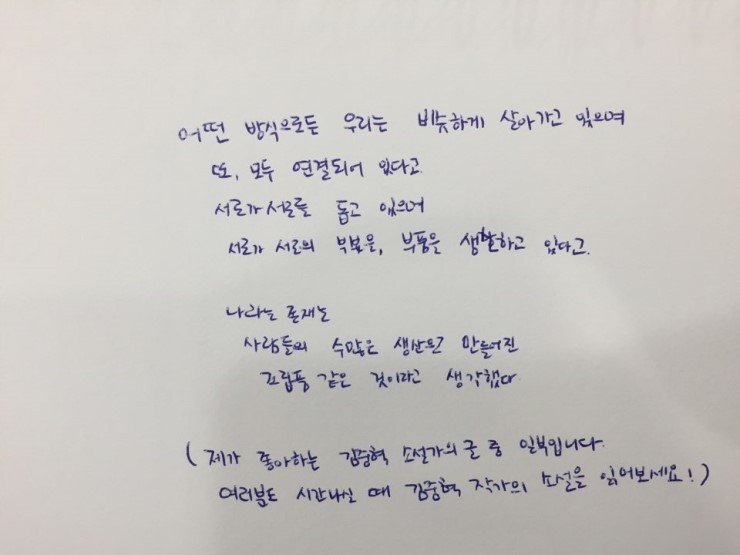 어떤 방식으로든 우리는 비슷하게 살아가고 있으며
또, 모두 연결되어 있다고
서로가 서로를 돕고 있으며
서로가 서로의 부분을, 부품을 생활하고 있다고.
나라는 존재는
사람들의 수많은 생산으로 만들어진
조립품 같은 것이라고 생각했다.
(제가 좋아하는 김중혁 소설가의 글 중 일부입니다.
여러분도 시간나실 때 김중혁 작가의 소설을 읽어보세요!)